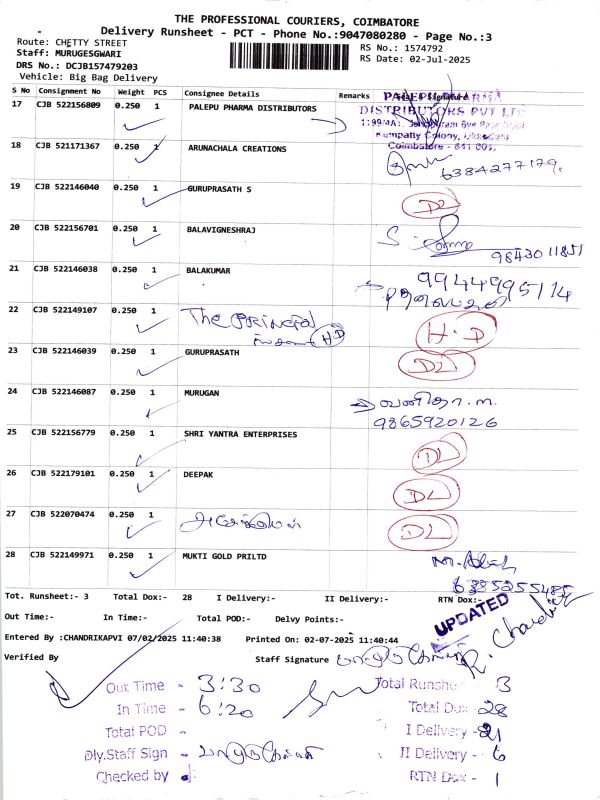 THE PROFESSIONAL COURIERS, COIMBATORE
Delivery Runsheet - PCT - Phone No.:9047080280 - Page No.:3
Route: CHETTY STREET
RS No.: 1574792
Staff: MURUGESWARI
RS Date: 02-Jul-2025
DRS No.: DCJB157479203
Vehicle: Big Bag Delivery
S No Consignment No Weight PCS Consignee Details Remarks Signature
17 CJB 522156809 0.250 1 PALEPU PHARMA DISTRIBUTORS
PALEPU PHARMA
DISTRIBUTORS PVT LTD
Coimbatore - 641 001.
18 CJB 521171367 0.250 1 ARUNACHALA CREATIONS
6384277179.
19 CJB 522146040 0.250 1 GURUPRASATH S DL
20 CJB 522156701 0.250 1 BALAVIGNESHRAJ
9843011851
21 CJB 522146038 0.250 1 BALAKUMAR
9944995114
22 CJB 522149107 0.250 1 The PRINCIPAL HD H.D
23 CJB 522146039 0.250 1 GURUPRASATH DL
24 CJB 522146087 0.250 1 MURUGAN
9865920126
25 CJB 522156779 0.250 1 SHRI YANTRA ENTERPRISES DL
26 CJB 522179101 0.250 1 DEEPAK DL
27 CJB 522070474 0.250 1 DL
28 CJB 522149971 0.250 1 MUKTI GOLD PRILTD
6385255485
Tot. Runsheet:- 3 Total Dox:- 28 I Delivery:- II Delivery:- RTN Dox:-
Out Time:- In Time:- Total POD:- Delvy Points:-
UPDATED
Entered By :CHANDRIKAPVI 07/02/2025 11:40:38 Printed On: 02-07-2025 11:40:44
Verified By Staff Signature
Out Time - 3:30 Total Runsheet 3
In Time - 6:20 Total Dox - 28
Total POD - I Delivery - 21
Dly.Staff Sign - II Delivery - 6
Checked by RTN Dox - 1